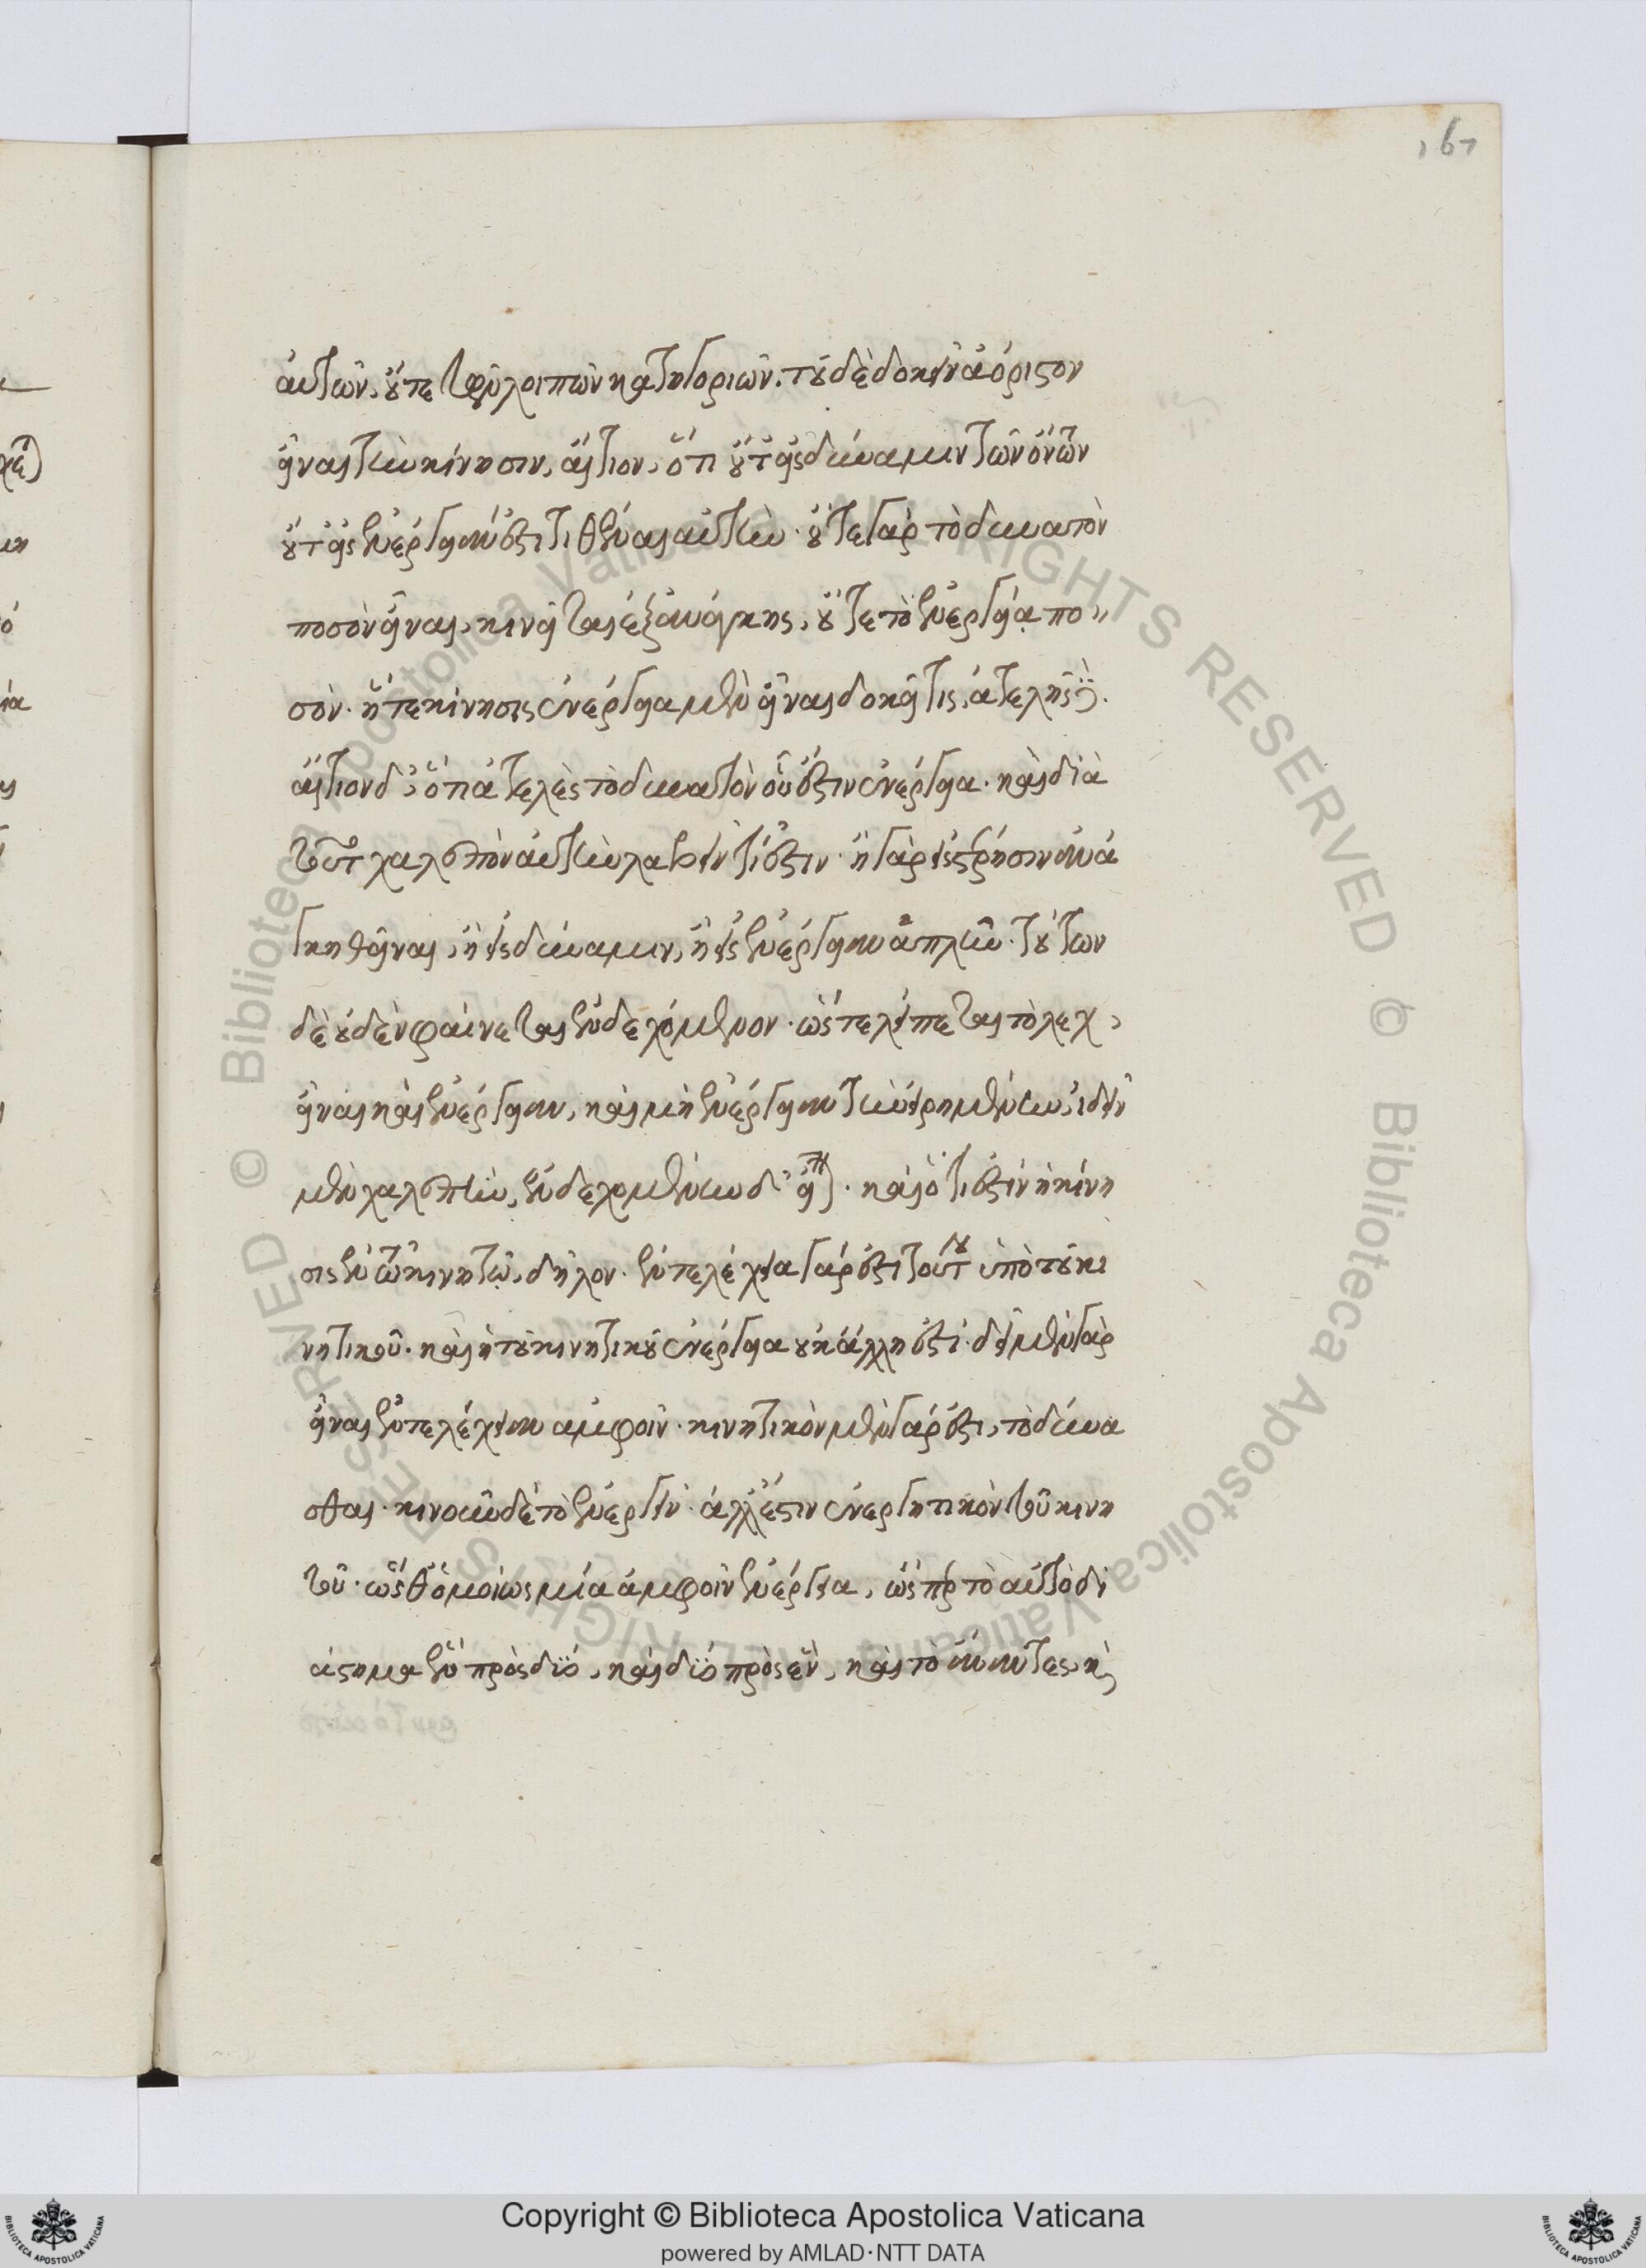 167
αὐτῶν, οὔτε τῶν λοιπῶν κατηγοριῶν. τοῦ δὲ δοκεῖν ἀόριστον
εἶναι τὴν κίνησιν, αἴτιον, ὅτι οὔτ' εἰς δύναμιν τῶν ὄντων
οὔτ' εἰς ἐνέργειαν ἔστι τιθέναι αὐτήν· οὔτε γὰρ τὸ δυνατὸν
ποσὸν εἶναι, κινεῖται ἐξ ἀνάγκης, οὔτε τὸ ἐνεργείᾳ πο
σόν. ἥ τε κίνησις ἐνέργεια μὲν εἶναι δοκεῖ τις, ἀτελὴς δέ.
αἴτιον δ', ὅτι ἀτελὲς τὸ δυνατὸν οὗ ἐστιν ἐνέργεια. καὶ διὰ
τοῦτο χαλεπὸν αὐτὴν λαβεῖν τί ἐστιν· ἢ γὰρ εἰς στέρησιν ἀνά
γκη θεῖναι, ἢ εἰς δύναμιν, ἢ εἰς ἐνέργειαν ἁπλῆν. τούτων
δὲ οὐδὲν φαίνεται ἐνδεχόμενον. ὥστε λείπεται τὸ λεχ,
εἶναι καὶ ἐνέργειαν, καὶ μὴ ἐνέργειαν τὴν εἰρημένην, ἰδεῖν
μὲν χαλεπὴν, ἐνδεχομένην δ' εἶναι. καὶ ὅτι ἐστὶν ἡ κίνη
σις ἐν τῷ κινητῷ, δῆλον. ἐντελέχεια γάρ ἐστι τούτου ὑπὸ τοῦ κι
νητικοῦ. καὶ ἡ τοῦ κινητικοῦ ἐνέργεια οὐκ ἄλλη ἐστί. δεῖ μὲν γὰρ
εἶναι ἐντελέχειαν ἀμφοῖν. κινητικὸν μὲν γάρ ἐστι, τὸ δύνα
σθαι. κινοῦν δὲ τὸ ἐνεργεῖν. ἀλλ' ἔστιν ἐνεργητικὸν τοῦ κινη
τοῦ. ὥσθ' ὁμοίως μία ἀμφοῖν ἐνέργεια, ὥσπερ τὸ αὐτὸ δι
άστημα ἓν πρὸς δύο, καὶ δύο πρὸς ἕν, καὶ τὸ ἄναντες, καὶ
Copyright © Biblioteca Apostolica Vaticana
powered by AMLAD·NTT DATA